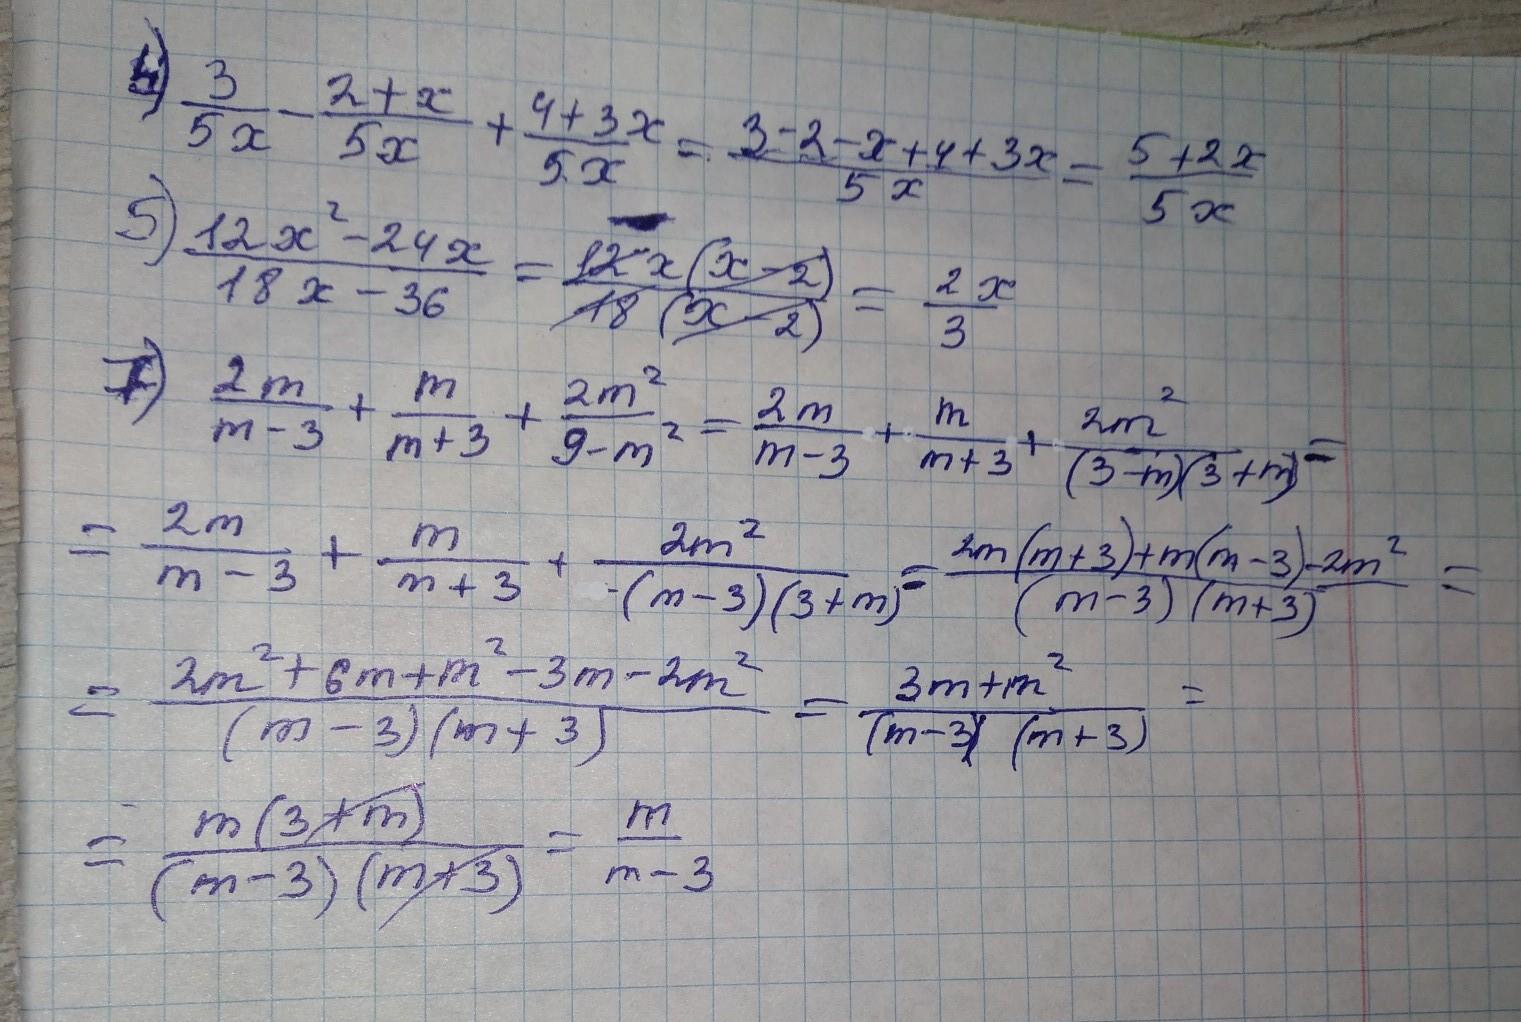 4) 3/5x - 2+x/5x + 4+3x/5x = 3-2-x+4+3x/5x = 5+2x/5x
5) 12x²-24x/18x-36 = 12x(x-2)/18(x-2) = 2x/3
7) 2m/m-3 + m/m+3 + 2m²/9-m² = 2m/m-3 + m/m+3 + 2m²/(3-m)(3+m) =
= 2m/m-3 + m/m+3 + 2m²/-(m-3)(3+m) = 2m(m+3)+m(m-3)-2m²/(m-3)(m+3) =
= 2m²+6m+m²-3m-2m²/(m-3)(m+3) = 3m+m²/(m-3)(m+3) =
= m(3+m)/(m-3)(m+3) = m/m-3